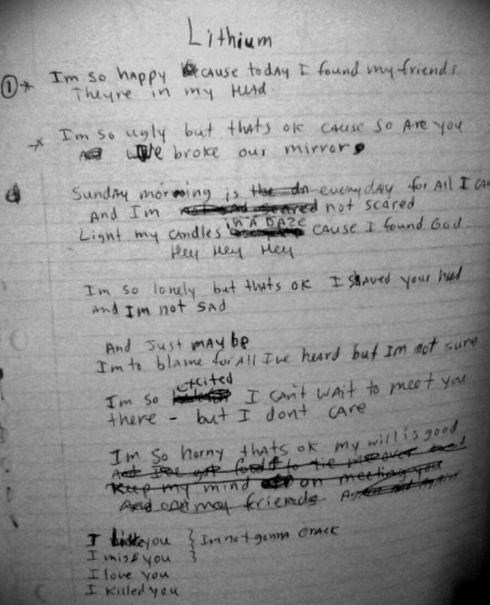 Lithium
① * Im so happy cause today I found my friends
Theyre in my Head
* Im so ugly but thats ok cause so Are you
we broke our mirrors
Sunday morning is the da everyday for All I ca
And I'm not sad scared not scared
Light my candles in A DAZE cause I found God
Hey Hey Hey
Im so lonely but thats ok I shaved your head
And Im not sad
And Just MAYbe
Im to blame for All Ive heard but Im not sure
Im so excited I can't wait to meet you
there - but I dont care
Im so horny thats ok my will is good
Keep my mind on meeting you
And friends
I like you } Im not gonna crack
I miss you }
I love you
I killed you